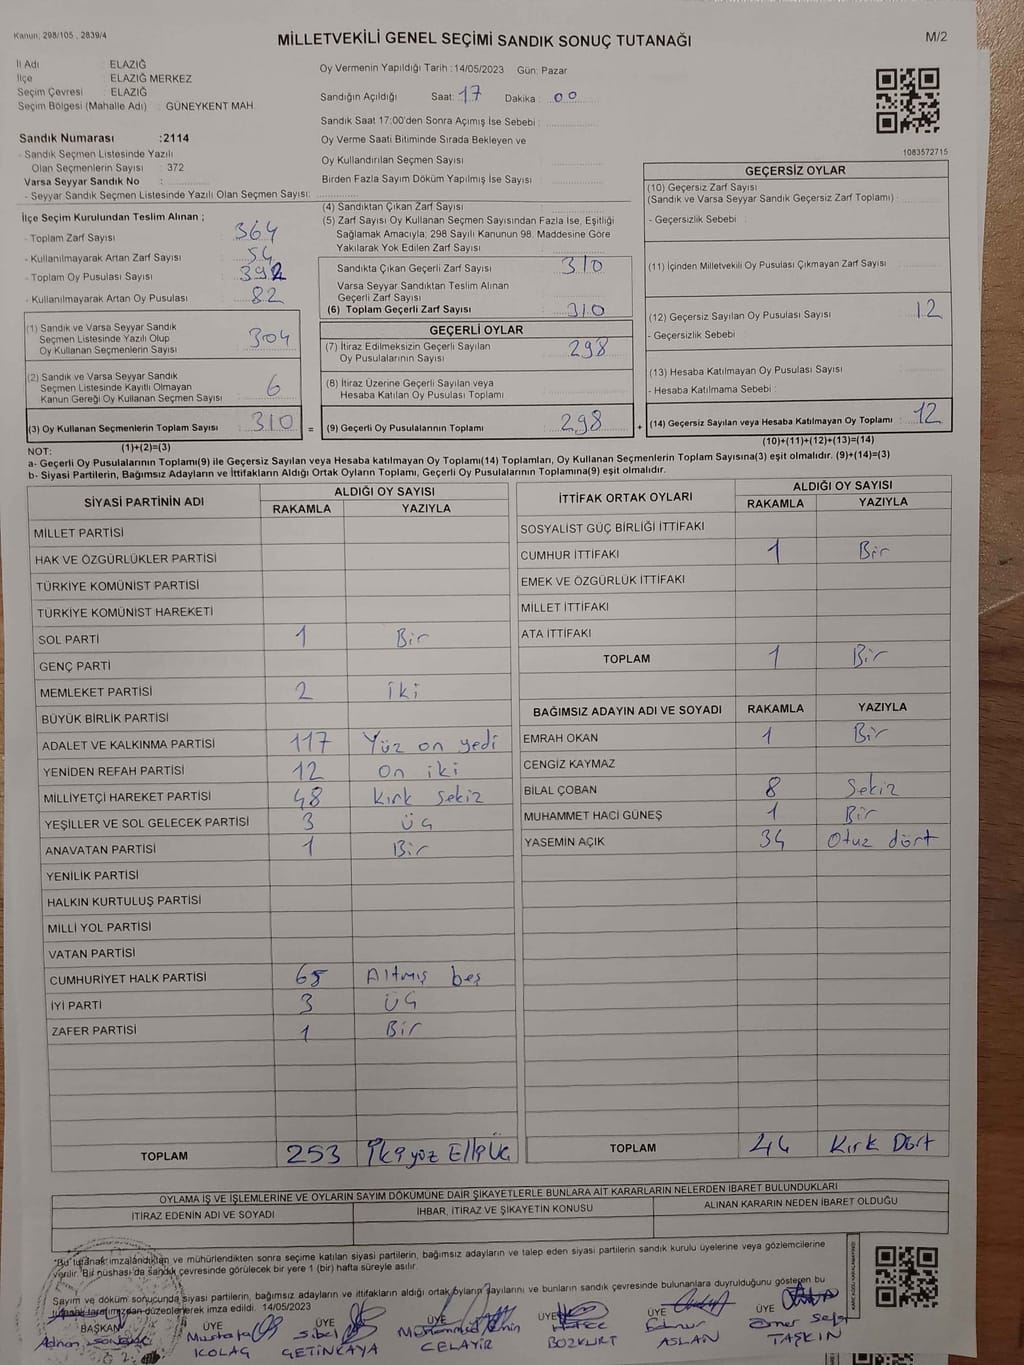 Kanun; 298/105 , 2839/4
MİLLETVEKİLİ GENEL SEÇİMİ SANDIK SONUÇ TUTANAĞI
M/2
İl Adı : ELAZIĞ
İlçe : ELAZIĞ MERKEZ
Seçim Çevresi : ELAZIĞ
Seçim Bölgesi (Mahalle Adı) : GÜNEYKENT MAH.
Sandık Numarası :2114
- Sandık Seçmen Listesinde Yazılı
Olan Seçmenlerin Sayısı : 372
Varsa Seyyar Sandık No :
- Seyyar Sandık Seçmen Listesinde Yazılı Olan Seçmen Sayısı:
Oy Vermenin Yapıldığı Tarih :14/05/2023 Gün: Pazar
Sandığın Açıldığı Saat: 17 Dakika : 00
Sandık Saat 17:00'den Sonra Açımış İse Sebebi :
Oy Verme Saati Bitiminde Sırada Bekleyen ve
Oy Kullandırılan Seçmen Sayısı :
Birden Fazla Sayım Döküm Yapılmış İse Sayısı :
1083572715
İlçe Seçim Kurulundan Teslim Alınan ;
- Toplam Zarf Sayısı : 364
- Kullanılmayarak Artan Zarf Sayısı : 54
- Toplam Oy Pusulası Sayısı : 392
- Kullanılmayarak Artan Oy Pusulası : 82
(1) Sandık ve Varsa Seyyar Sandık
Seçmen Listesinde Yazılı Olup
Oy Kullanan Seçmenlerin Sayısı : 304
(2) Sandık ve Varsa Seyyar Sandık
Seçmen Listesinde Kayıtlı Olmayan
Kanun Gereği Oy Kullanan Seçmen Sayısı : 6
(3) Oy Kullanan Seçmenlerin Toplam Sayısı : 310
(1)+(2)=(3)
(4) Sandıktan Çıkan Zarf Sayısı :
(5) Zarf Sayısı Oy Kullanan Seçmen Sayısından Fazla İse, Eşitliği
Sağlamak Amacıyla; 298 Sayılı Kanunun 98. Maddesine Göre
Yakılarak Yok Edilen Zarf Sayısı :
Sandıkta Çıkan Geçerli Zarf Sayısı : 310
Varsa Seyyar Sandıktan Teslim Alınan
Geçerli Zarf Sayısı :
(6) Toplam Geçerli Zarf Sayısı : 310
GEÇERLİ OYLAR
(7) İtiraz Edilmeksizin Geçerli Sayılan
Oy Pusulalarının Sayısı : 298
(8) İtiraz Üzerine Geçerli Sayılan veya
Hesaba Katılan Oy Pusulası Toplamı :
= (9) Geçerli Oy Pusulalarının Toplamı : 298 +
GEÇERSİZ OYLAR
(10) Geçersiz Zarf Sayısı
(Sandık ve Varsa Seyyar Sandık Geçersiz Zarf Toplamı) :
- Geçersizlik Sebebi :
(11) İçinden Milletvekili Oy Pusulası Çıkmayan Zarf Sayısı :
(12) Geçersiz Sayılan Oy Pusulası Sayısı : 12
- Geçersizlik Sebebi :
(13) Hesaba Katılmayan Oy Pusulası Sayısı :
- Hesaba Katılmama Sebebi :
(14) Geçersiz Sayılan veya Hesaba Katılmayan Oy Toplamı : 12
(10)+(11)+(12)+(13)=(14)
NOT:
a- Geçerli Oy Pusulalarının Toplamı(9) ile Geçersiz Sayılan veya Hesaba katılmayan Oy Toplamı(14) Toplamları, Oy Kullanan Seçmenlerin Toplam Sayısına(3) eşit olmalıdır. (9)+(14)=(3)
b- Siyasi Partilerin, Bağımsız Adayların ve İttifakların Aldığı Ortak Oyların Toplamı, Geçerli Oy Pusulalarının Toplamına(9) eşit olmalıdır.
SİYASİ PARTİNİN ADI ALDIĞI OY SAYISI
RAKAMLA YAZIYLA
MİLLET PARTİSİ
HAK VE ÖZGÜRLÜKLER PARTİSİ
TÜRKİYE KOMÜNİST PARTİSİ
TÜRKİYE KOMÜNİST HAREKETİ
SOL PARTİ 1 Bir
GENÇ PARTİ
MEMLEKET PARTİSİ 2 İki
BÜYÜK BİRLİK PARTİSİ
ADALET VE KALKINMA PARTİSİ 117 Yüz on yedi
YENİDEN REFAH PARTİSİ 12 On iki
MİLLİYETÇİ HAREKET PARTİSİ 48 Kırk sekiz
YEŞİLLER VE SOL GELECEK PARTİSİ 3 Üç
ANAVATAN PARTİSİ 1 Bir
YENİLİK PARTİSİ
HALKIN KURTULUŞ PARTİSİ
MİLLİ YOL PARTİSİ
VATAN PARTİSİ
CUMHURİYET HALK PARTİSİ 65 Altmış beş
İYİ PARTİ 3 Üç
ZAFER PARTİSİ 1 Bir
TOPLAM 253 İkiyüz Elliüç
İTTİFAK ORTAK OYLARI ALDIĞI OY SAYISI
RAKAMLA YAZIYLA
SOSYALİST GÜÇ BİRLİĞİ İTTİFAKI
CUMHUR İTTİFAKI 1 Bir
EMEK VE ÖZGÜRLÜK İTTİFAKI
MİLLET İTTİFAKI
ATA İTTİFAKI
TOPLAM 1 Bir
BAĞIMSIZ ADAYIN ADI VE SOYADI RAKAMLA YAZIYLA
EMRAH OKAN 1 Bir
CENGİZ KAYMAZ
BİLAL ÇOBAN 8 Sekiz
MUHAMMET HACİ GÜNEŞ 1 Bir
YASEMİN AÇIK 34 Otuz dört
TOPLAM 44 Kırk Dört
OYLAMA İŞ VE İŞLEMLERİNE VE OYLARIN SAYIM DÖKÜMÜNE DAİR ŞİKAYETLERLE BUNLARA AİT KARARLARIN NELERDEN İBARET BULUNDUKLARI
İTİRAZ EDENİN ADI VE SOYADI İHBAR, İTİRAZ VE ŞİKAYETİN KONUSU ALINAN KARARIN NEDEN İBARET OLDUĞU
"Bu tutanak imzalandıktan ve mühürlendikten sonra seçime katılan siyasi partilerin, bağımsız adayların ve talep eden siyasi partilerin sandık kurulu üyelerine veya gözlemcilerine
verilir. Bir nüshası da sandık çevresinde görülecek bir yere 1 (bir) hafta süreyle asılır.
Sayım ve döküm sonucunda siyasi partilerin, bağımsız adayların ve ittifakların aldığı ortak oyların sayılarını ve bunların sandık çevresinde bulunanlara duyrulduğunu gösteren bu
tutanak tarafımızdan düzenlenerek imza edildi. 14/05/2023
BAŞKAN ÜYE ÜYE ÜYE ÜYE ÜYE ÜYE
Adnan Mustafa Sibel Muhammed Emin Ömer
KOLAG ÇETİNKAYA CELAYİR BOZKURT ASLAN TAŞKIN